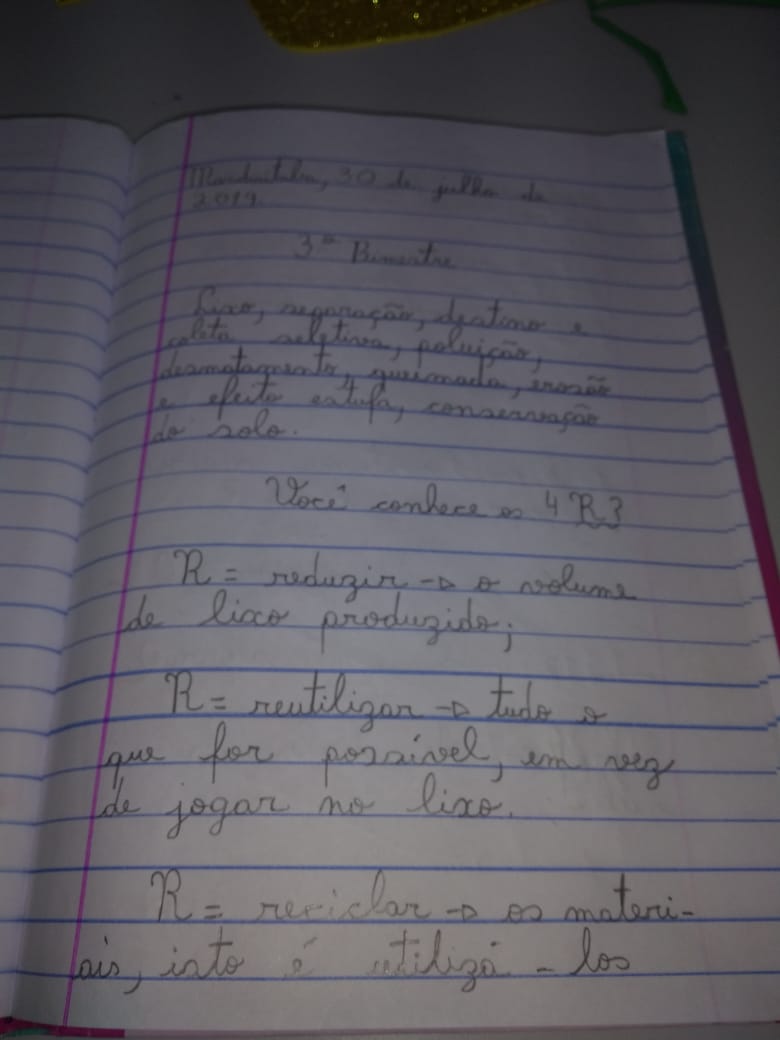 30 de julho de
2019.
3º Bimestre
Lixo, separação, destino e
coleta seletiva, poluição,
desmatamento, queimada, erosão
e efeito estufa, conservação
do solo.
Você conhece os 4 R?
R = reduzir → o volume
de lixo produzido;
R = reutilizar → tudo o
que for possível, em vez
de jogar no lixo.
R = reciclar → os materi-
ais, isto é utilizá - los